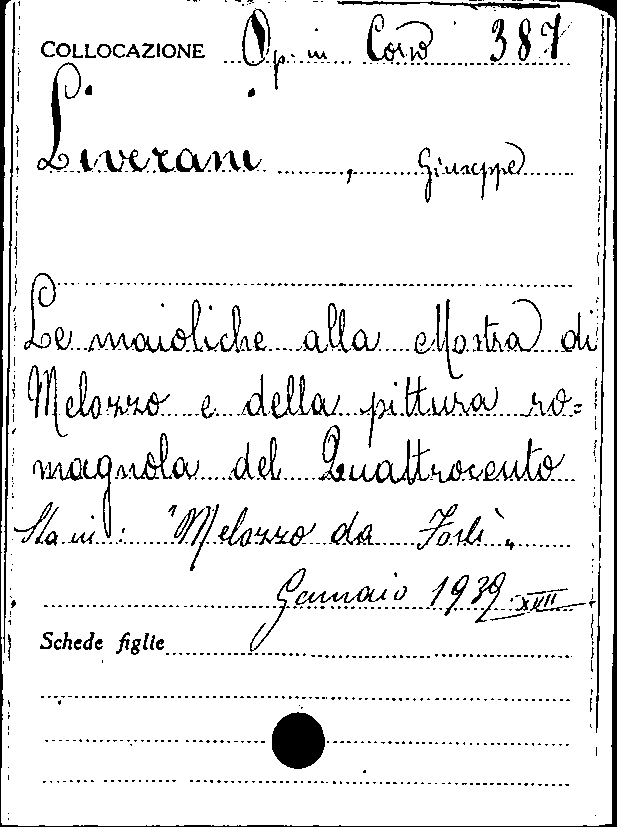 COLLOCAZIONE Op. in Corso 387
Liverani, Giuseppe
Le maioliche alla Mostra di
Melozzo e della pittura ro=
magnola del Quattrocento
Sta in: "Melozzo da Forlì"
Gennaio 1939 XVII
Schede figlie